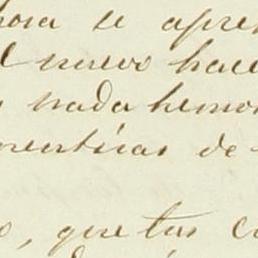 hora se apre
l nuevo hace
nada hemo
mentiras de
o, que tus c